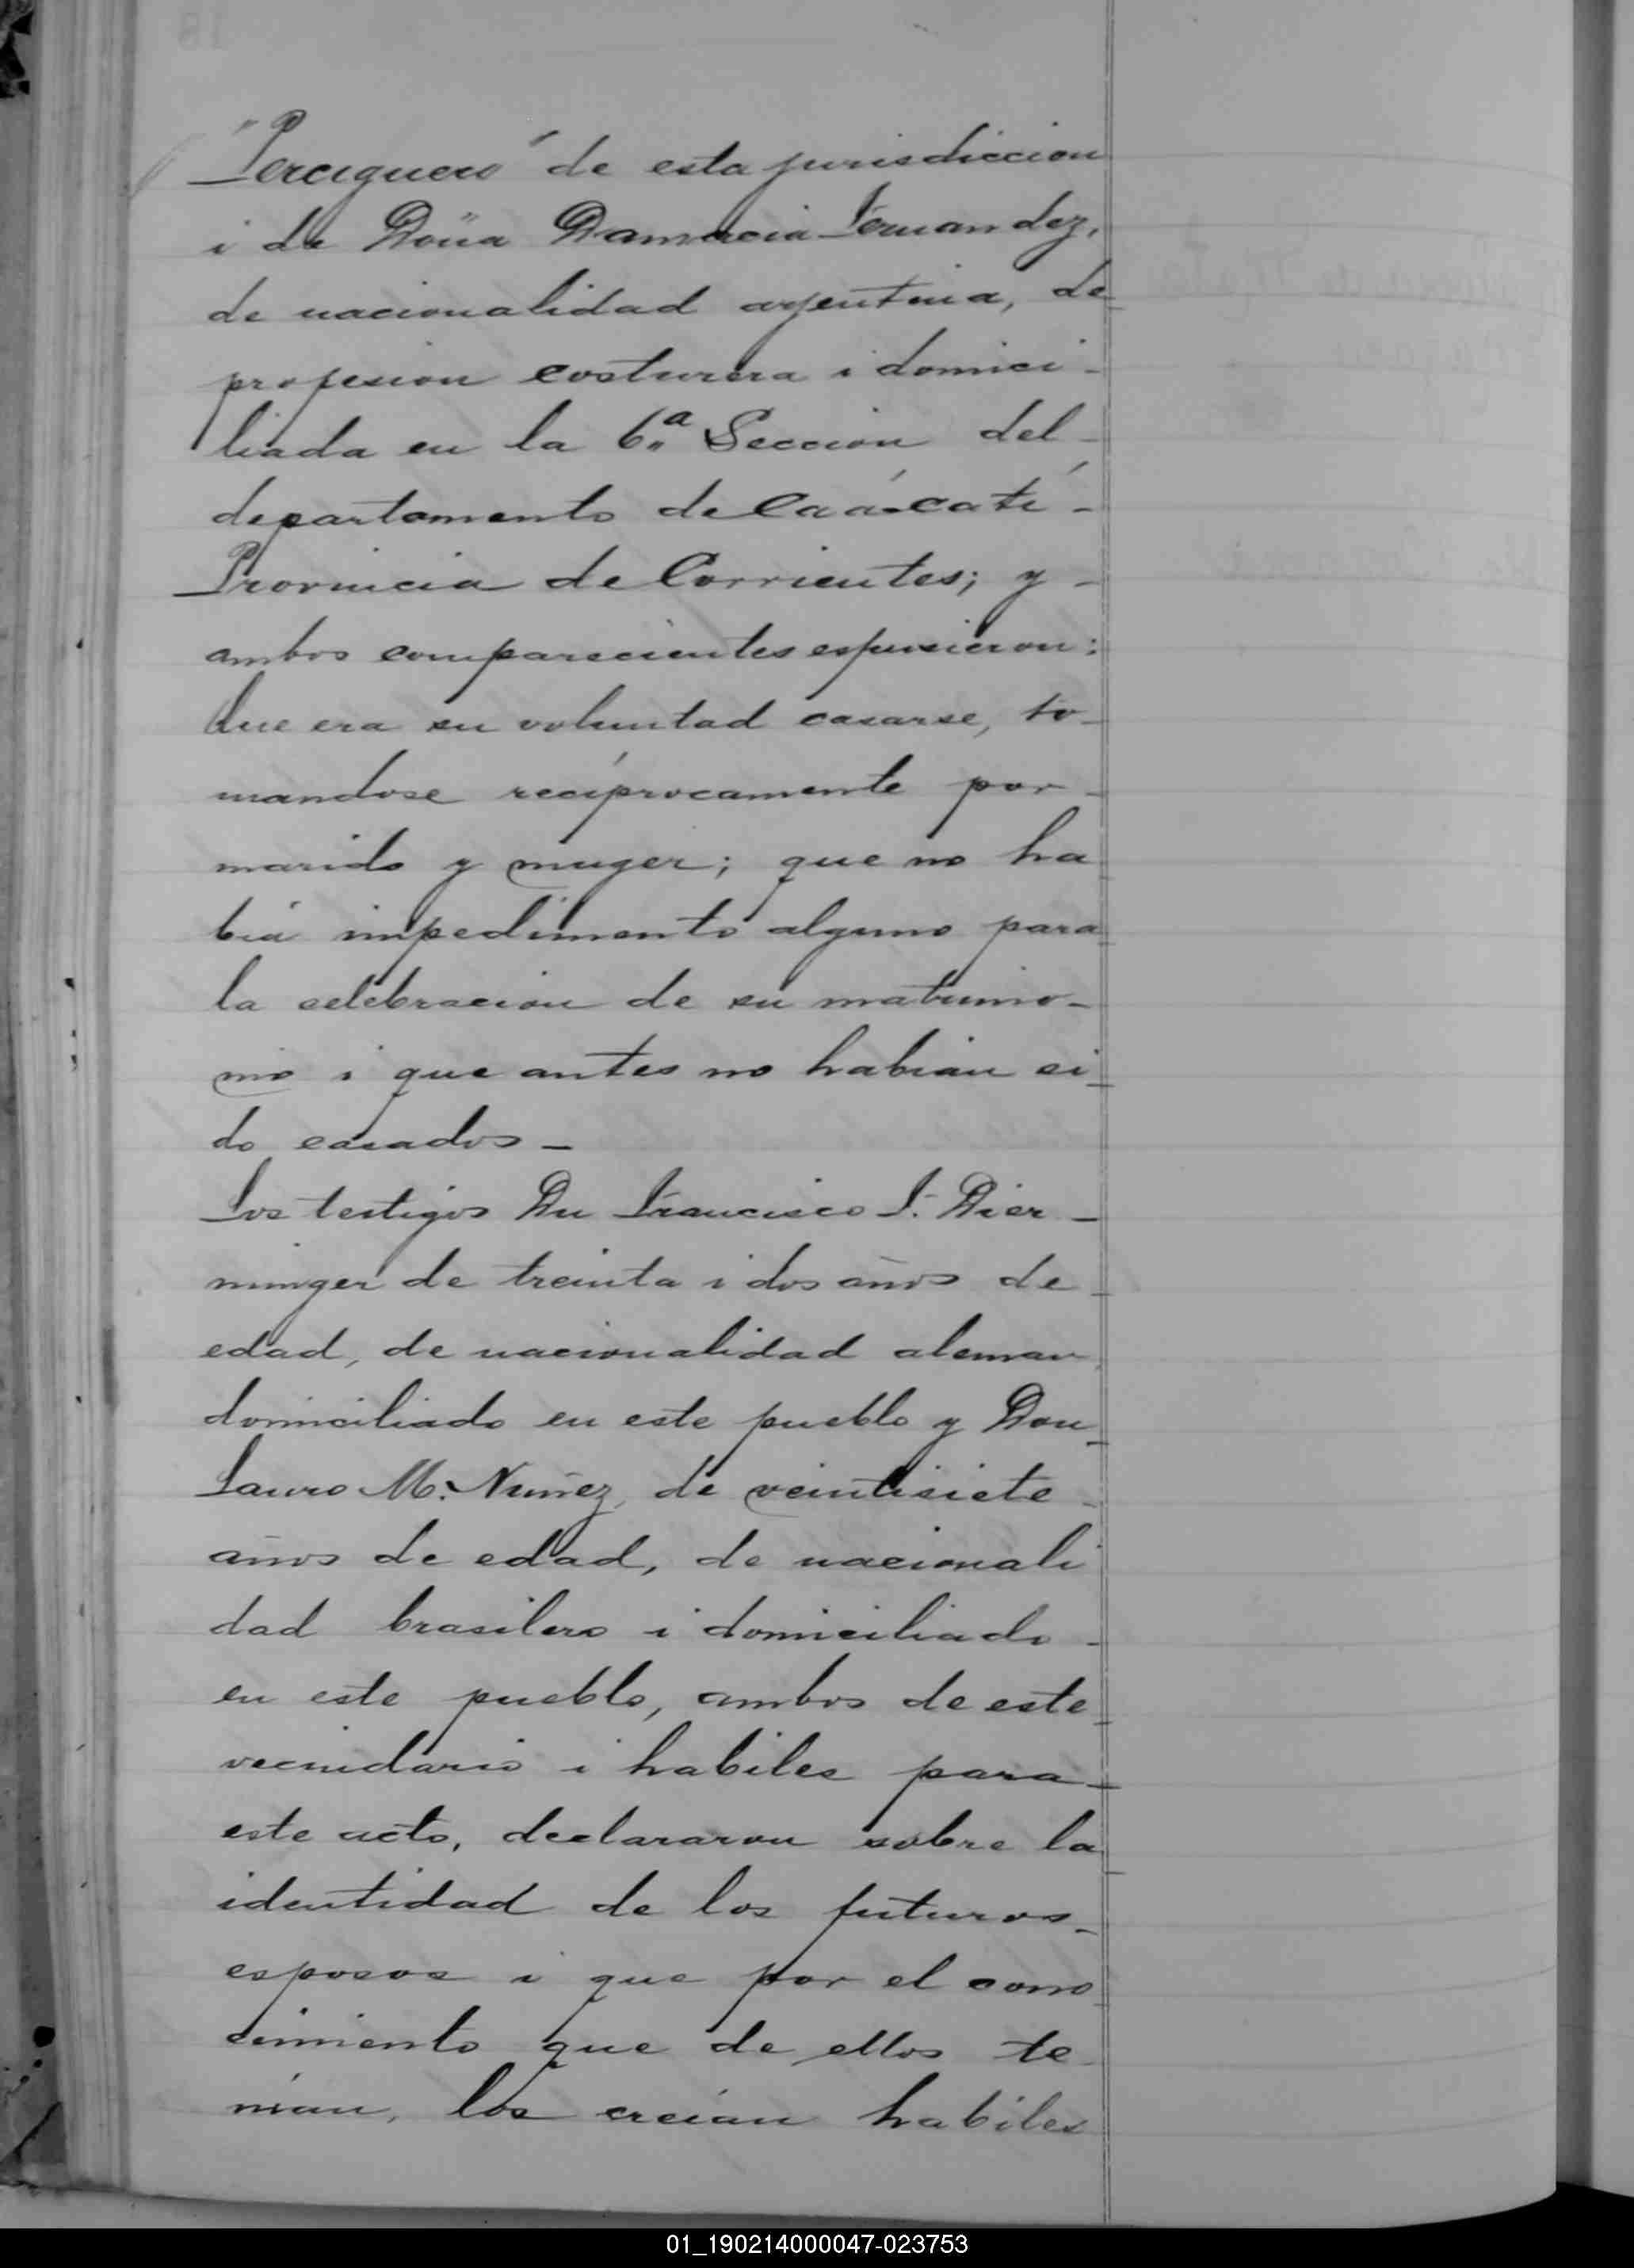 "Perciguero" de esta jurisdiccion
i de Doña Damacia Fernandez,
de nacionalidad argentina, de
profesion costurera i domici-
liada en la 6.ª Seccion del
departamento de Caá-catí -
Provincia de Corrientes; y -
ambos comparecientes espusieron:
Que era su voluntad casarse, to-
mandose recíprocamente por -
marido y muger; que no ha
bia impedimento alguno para
la celebracion de su matrimo-
nio i que antes no habian si-
do casados -
Los testigos Dn Francisco J. Dier-
minger de treinta i dos años de
edad, de nacionalidad aleman
domiciliado en este pueblo y Don
Lauro M. Nuñez, de veintisiete
años de edad, de nacionali
dad brasilero i domiciliado -
en este pueblo, ambos de este
vecindario i habiles para -
este acto, declararon sobre la
identidad de los futuros -
esposos i que por el cono
cimiento que de ellos te
nian, los creian habiles
01_190214000047-023753